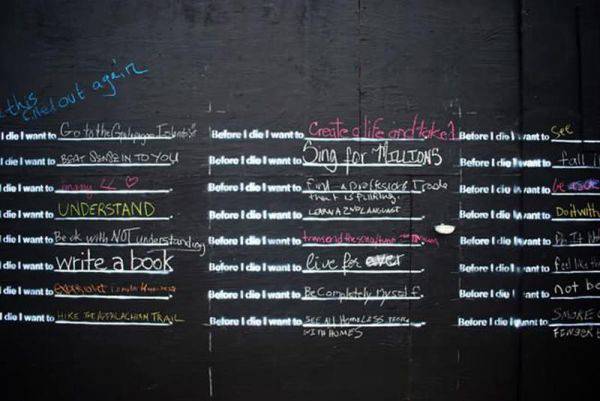 this
out again
I die I want to Go to the Islands
I die I want to BEAT SENSE IN TO YOU
I die I want to
I die I want to UNDERSTAND
I die I want to Be ok with NOT understanding
I die I want to write a book
I die I want to
I die I want to HIKE THE APPALACHIAN TRAIL
Before I die I want to Create a life and take 1
Before I die I want to Sing for MILLIONS
Before I die I want to find a profession / trade
that is
Before I die I want to LEARN A 2ND LANGUAGE
Before I die I want to transcend
Before I die I want to live for ever
Before I die I want to Be Completely Myself.
Before I die I want to SEE ALL HOMELESS PEOPLE
WITH HOMES
Before I die I want to See
Before I die I want to fall i
Before I die I want to be
Before I die I want to Do it with
Before I die I want to Do It
Before I die I want to feel like
Before I die I want to not be
Before I die I want to SMOKE